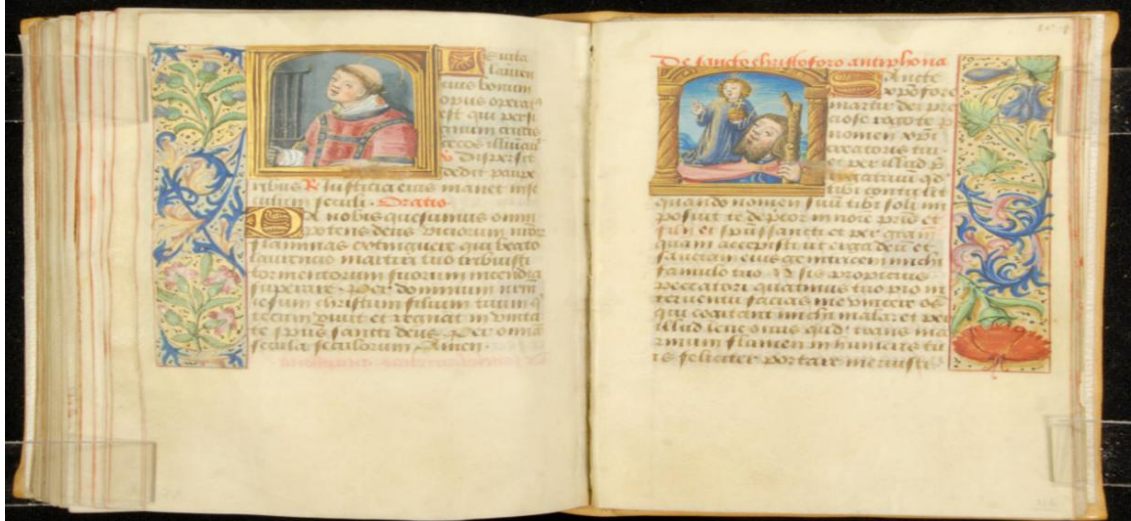 Levita
lauren
cius bonum
opus opera
est qui per si
gnum crucis
cecos illumi
℣ Dispersit
dedit paupe
ribus ℟ Justicia eius manet in se
culum seculi. Oratio
Da nobis quesumus omni
potens deus viciorum nror
flammas extinguere qui beato
laurencio martiri tuo tribuisti
tormentorum suorum incendia
superare. Per dominum nrm
iesum christum filium tuum q
tecum vivit et regnat in unita
te spūs sancti deus. Per omīa
secula seculorum Amen.
De sancto christoforo antiphona
Sancte
xpōfore
martir dei pre
ciose rogo te p
nomen xpī
creatoris tui
et per illud p
rogativū qd
tibi contulit
quando nomen suū tibi soli im
posuit te dep̄cor in noīe pr̄is et
filii et spūssancti et per grām
quam accepisti ut erga deū et
sanctam eius genitricem michi
famulo tuo N sis propicius
peccatori quatinus tuo pio in
terventu facias me vincere oēs
qui cogitant michi mala: et per
illud leve onus quod trans ma
rinum flumen in humeris tu
is feliciter portare meruisti